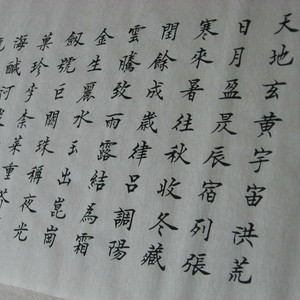 天地玄黃宇宙洪荒
日月盈昃辰宿列張
寒來暑往秋收冬藏
閏餘成歲律呂調陽
雲騰致雨露結為霜
金生麗水玉出崑崗
劍號巨闕珠稱夜光
菓珍李柰菜重芥
海鹹河